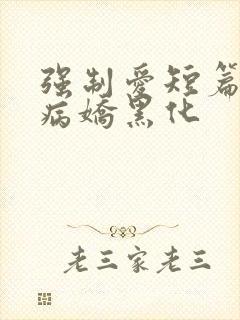 强制爱短篇
病嬌黑化
老三家老三